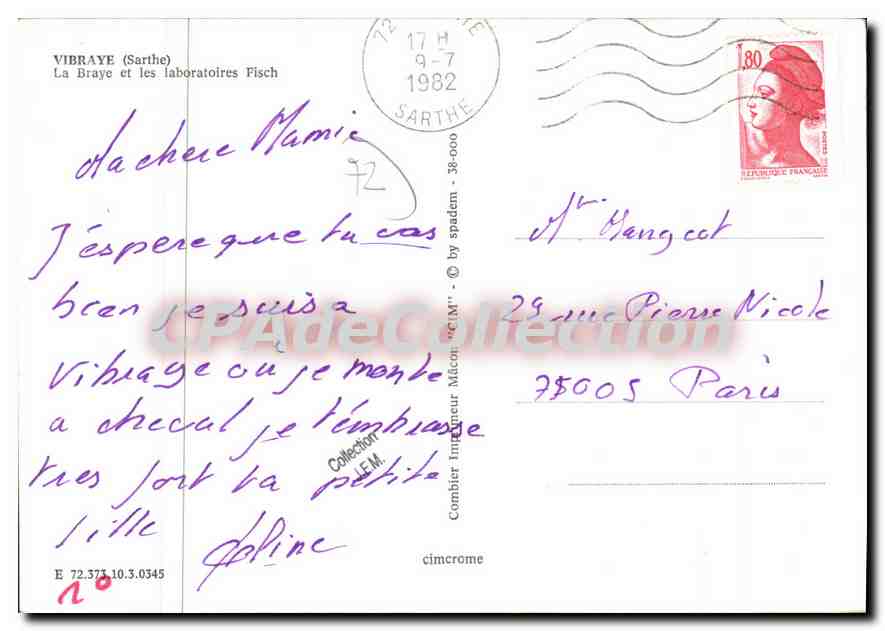 VIBRAYE (Sarthe)
La Braye et les laboratoires Fisch
17 H
9-7
1982
SARTHE
1,80
POSTES
REPUBLIQUE FRANÇAISE
Ma chere Mamie
72
J'éspere que tu vas
bien je suis a
vibraye où je monte
a cheval je t'embrasse
tres fort ta petite
fille
Mr. Mangeot
29 rue Pierre Nicole
75005 Paris
CPAdeCollection
Collection
J.F.M.
Combier Imprimeur Mâcon "CIM" - © by spadem - 38-000
E 72.373.10.3.0345
cimcrome